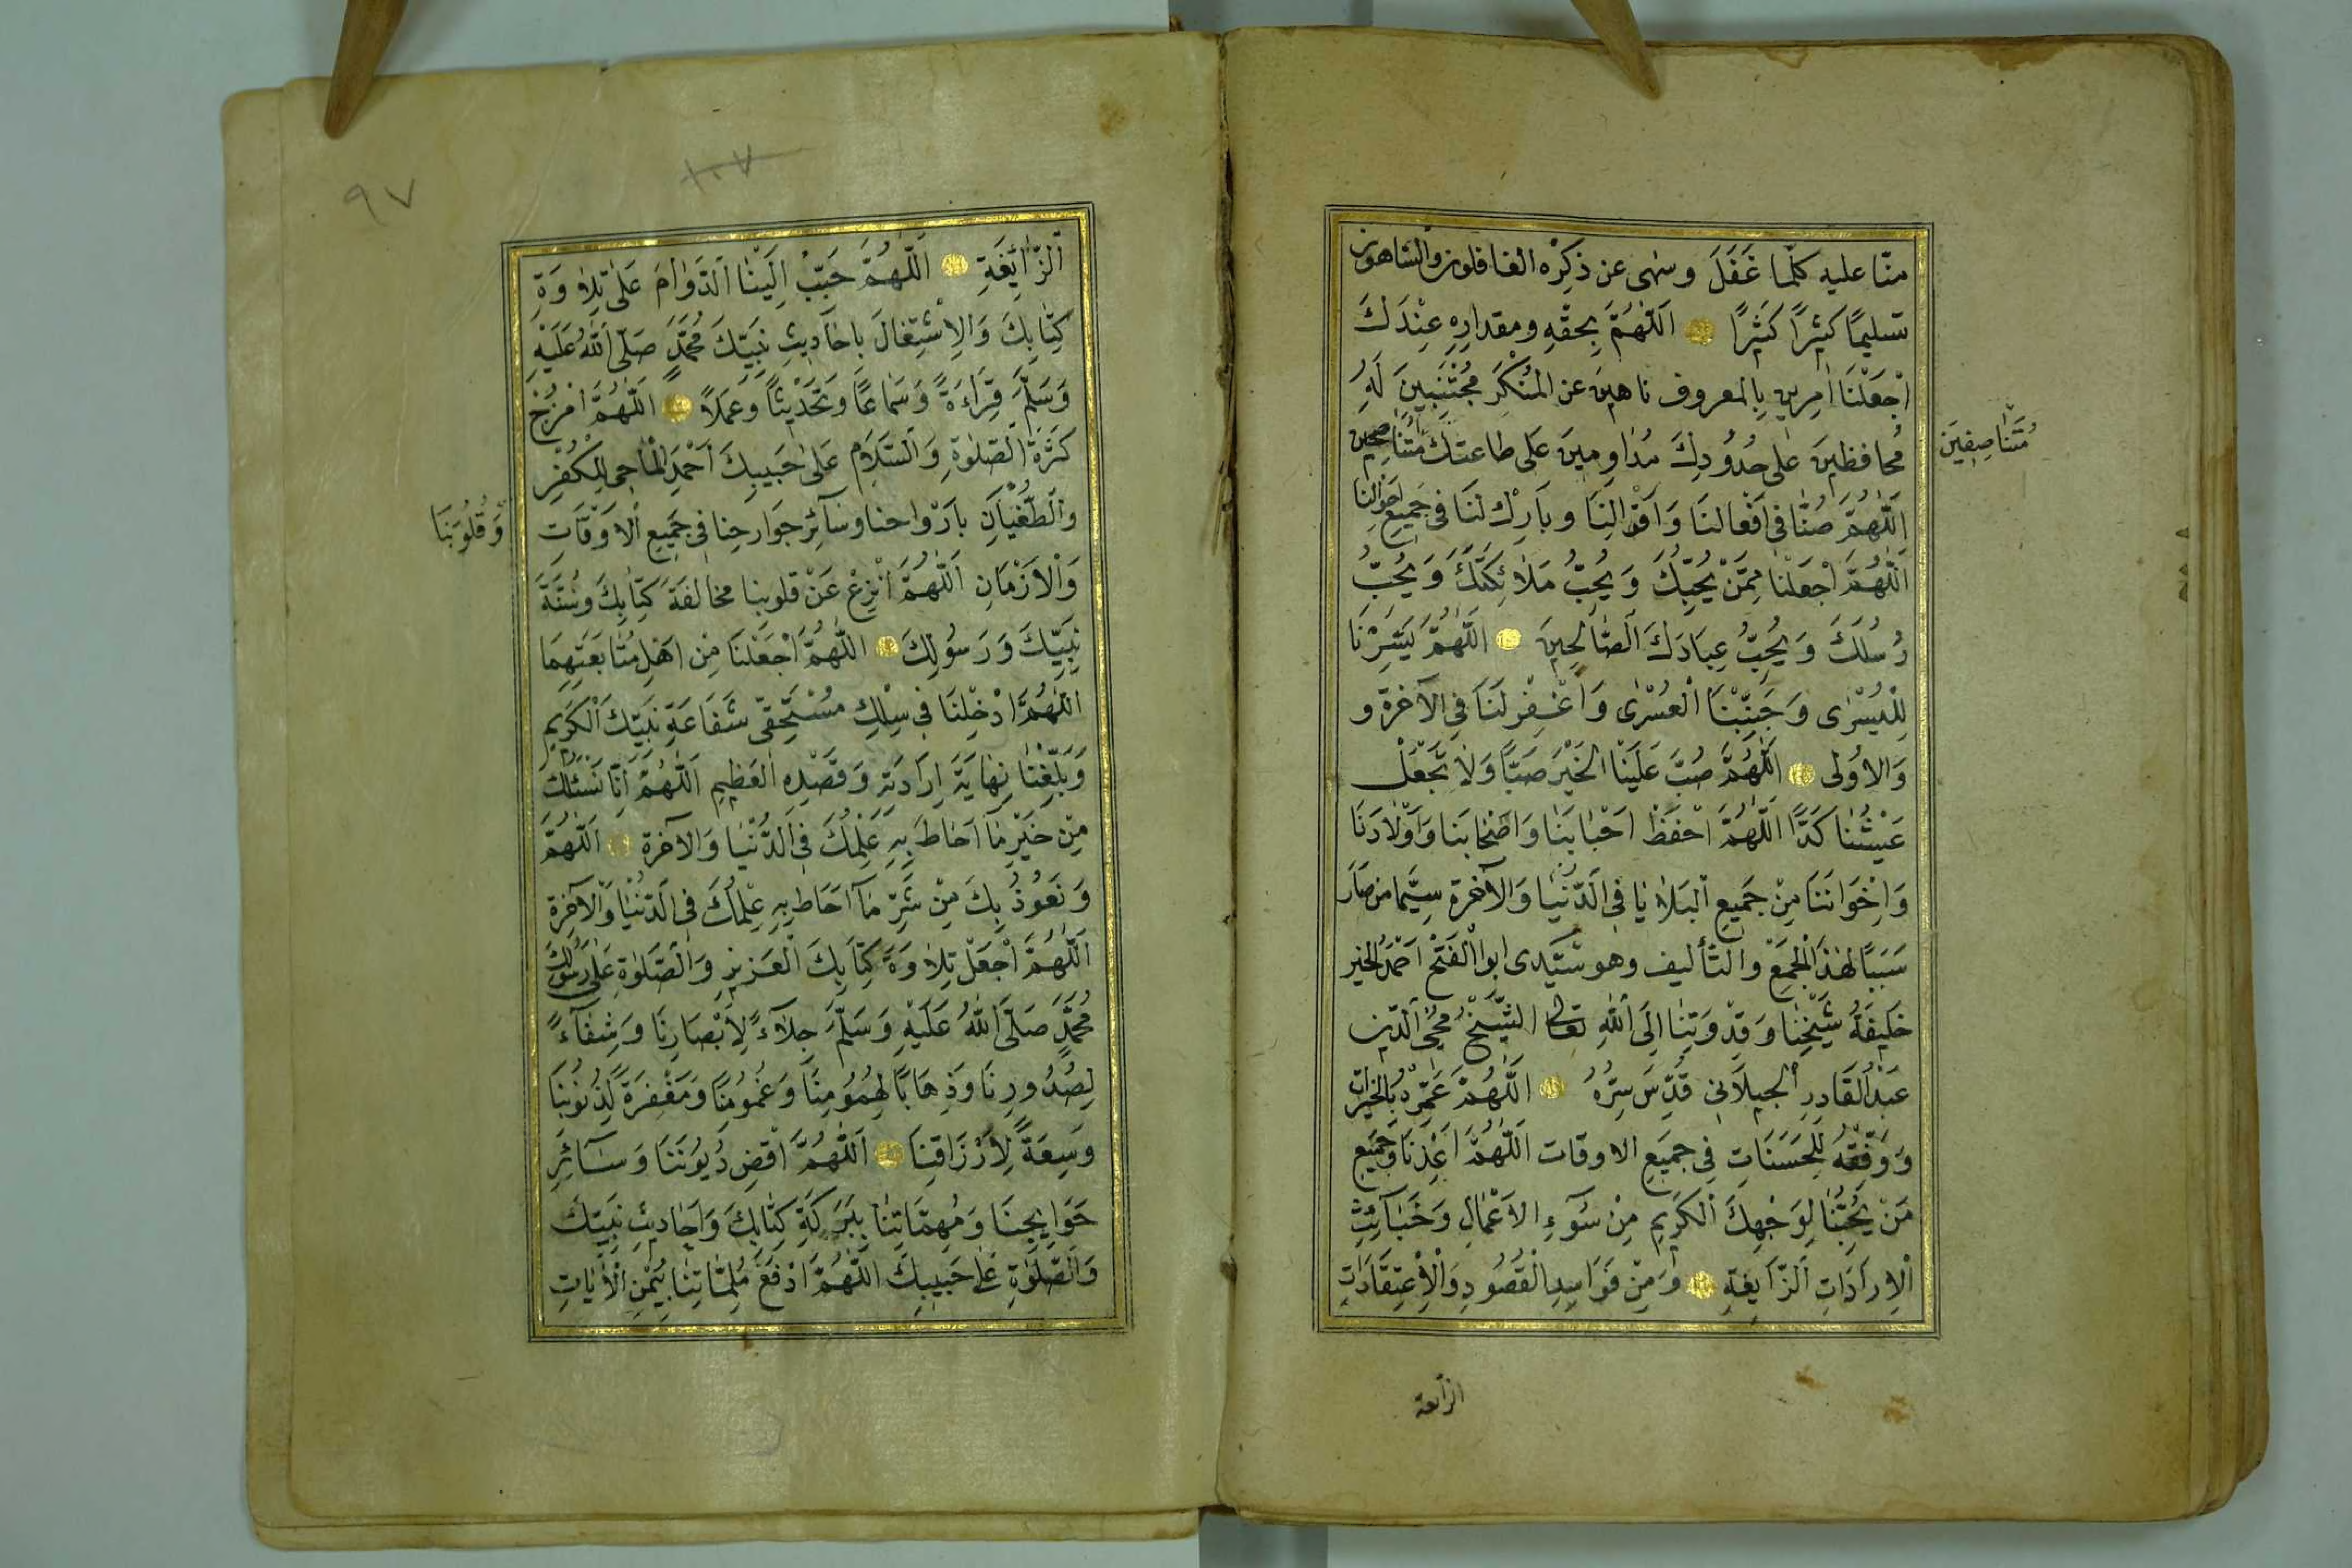 منّا عليه كلّما غَفَلَ وسهى عن ذكرِه الغافلون والساهون
تسليمًا كثيرًا كثيرًا اَللّٰهُمَّ بِحقِّهِ ومقدارِهِ عِنْدَكَ
اجْعَلْنَا اٰمِرين بالمعروف ناهينَ عن المُنْكَرِ مُجْتَنِبينَ لَهُ
مُحافظينَ على حدُودِكَ مُدَاوِمينَ عَلى طاعتكَ مُتَنَاصِحِينَ
مُتَنَاصِفِينَ
اَللّٰهُمَّ صُنَّا فى اَفْعالنَا وَاَقْوالِنَا وبَارِكْ لَنَا فى جَميعِ اَحْوَالِنَا
اَللّٰهُمَّ اجْعَلْنَا مِمَّنْ يُحِبُّكَ وَيُحِبُّ مَلَائِكَتَكَ وَيُحِبُّ
رُسُلَكَ وَيُحِبُّ عِبَادَكَ الصَّالِحِينَ اَللّٰهُمَّ يَسِّرْنَا
لِلْيُسْرٰى وَجَنِّبْنَا الْعُسْرٰى وَاغْفِرْ لَنَا فِى الآخرة و
وَالاُولى اَللّٰهُمَّ صُبَّ عَلَيْنَا الْخَيْرَ صَبًّا وَلَا تَجْعَلْ
عَيْشَنَا كَدًّا اَللّٰهُمَّ احْفَظْ اَحْبَابَنَا وَاَصْحَابَنَا وَاَوْلَادَنَا
وَاِخْوَانَنَا مِنْ جَميعِ الْبَلَايَا فى الدُّنْيَا وَالآخرة سِيَّمَا من صَارَ
سَبَبًا لهٰذَا الْجَمْعِ والتأليف وهو سَيّدى ابو الْفَتْحِ احْمَدُ الخير
خَليفَةُ شَيْخِنَا وَقِدْوَتِنَا اِلَى اللهِ تعالى الشَّيْخُ مُحْيِى الدّين
عَبْدُ الْقَادِرِ الْجيلَانى قُدِّسَ سِرُّهُ اَللّٰهُمَّ عَمِّرْهُ بِالْخَيْرَاتِ
وَوَفِّقْهُ لِلْحَسَنَاتِ فى جَميعِ الاوقات اَللّٰهُمَّ اَعِذْنَا وَجَميع
مَنْ يُحِبُّنَا لِوَجْهِكَ الْكَريمِ مِنْ سُوءِ الاَعْمَالِ وَخَبَائِثِ
الْاِرادَاتِ الزَّايِغَةِ وَمِنْ فَوَاسِدِ الْقُصُودِ وَالْاِعْتِقَادَاتِ
الزايغة
٩٧
١٠٧
الزَّائِغَةِ اَللّٰهُمَّ حَبِّبْ اِلَيْنَا الدَّوَامَ عَلى تِلَاوَةِ
كِتَابِكَ وَالاِشْتِغَالَ بِاَحَاديثِ نَبِيِّكَ مُحَمَّدٍ صَلَّى اللهُ عَلَيْهِ
وَسَلَّمَ قِرَاءَةً وَسَمَاعًا وَتَحْديثًا وَعَمَلًا اَللّٰهُمَّ امْزُجْ
كَثْرَةَ الصَّلٰوةِ وَالسَّلَامِ عَلى حَبيبِكَ اَحْمَدِ الْمَاحِى لِلْكُفْرِ
والطُّغْيَانِ باَرْواحنا وسَائِرِ جوارحِنا فى جَميعِ الاَوْقَاتِ
وَقُلُوبَنَا
وَالْاَزْمَانِ اَللّٰهُمَّ انْزِعْ عَنْ قلوبِنا مخالفةَ كِتَابِكَ وسُنَّةَ
نَبِيِّكَ وَرَسُولِكَ اَللّٰهُمَّ اجْعَلْنَا مِنْ اهْلِ مُتَابَعَتِهِمَا
اَللّٰهُمَّ ادْخِلْنَا فى سِلْكِ مُسْتَحِقّى شَفَاعَةِ نَبِيِّكَ الْكَريمِ
وَبَلِّغْنَا نِهَايَةَ اِرَادَتِهِ وَقَصْدِهِ الْعَظيمِ اَللّٰهُمَّ اِنَّا نَسْئَلُكَ
مِنْ خَيْرِ مَا اَحَاطَ بِهِ عِلْمُكَ فى الدُّنْيَا وَالآخرة اَللّٰهُمَّ
وَنَعُوذُ بِكَ مِنْ شَرِّ مَا اَحَاطَ بِهِ عِلْمُكَ فى الدُّنْيَا وَالْآخِرَةِ
اَللّٰهُمَّ اجْعَلْ تِلَاوَةَ كِتَابِكَ الْعَزيزِ وَالصَّلٰوةِ عَلى رَسُولِكَ
مُحَمَّدٍ صَلَّى اللهُ عَلَيْهِ وَسَلَّمَ جِلَاءً لِاَبْصَارِنَا وَشِفَاءً
لِصُدُورِنَا وَذِهَابًا لِهُمُومِنَا وَغُمُومِنَا وَمَغْفِرَةً لِذُنُوبِنَا
وَسِعَةً لِاَرْزَاقِنَا اَللّٰهُمَّ اقْضِ دُيُونَنَا وَسَائِرَ
حَوَايِجِنَا وَمُهِمَّاتِنَا بِبَرَكَةِ كِتَابِكَ وَاَحَاديثِ نَبِيِّكَ
وَالصَّلٰوةِ عَلى حَبيبِكَ اَللّٰهُمَّ ادْفَعْ مُلِمَّاتِنَا بِيُمْنِ الْاٰيَاتِ